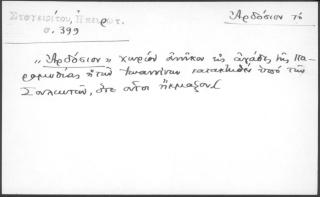 Στογιρίτου, Ἠπειρωτ. Ἀρδόσιον τό
σ. 399
„ Ἀρδόσιον „ χωρίον ἀνῆκον εἰς ἀγάδες τῆς Πα-
ραμυθίας ἢ τῶν Ἰωαννίνων κατακτηθὲν ὑπὸ τῶν
Σουλιωτῶν, ὅτε οὗτοι ἤκμαζον